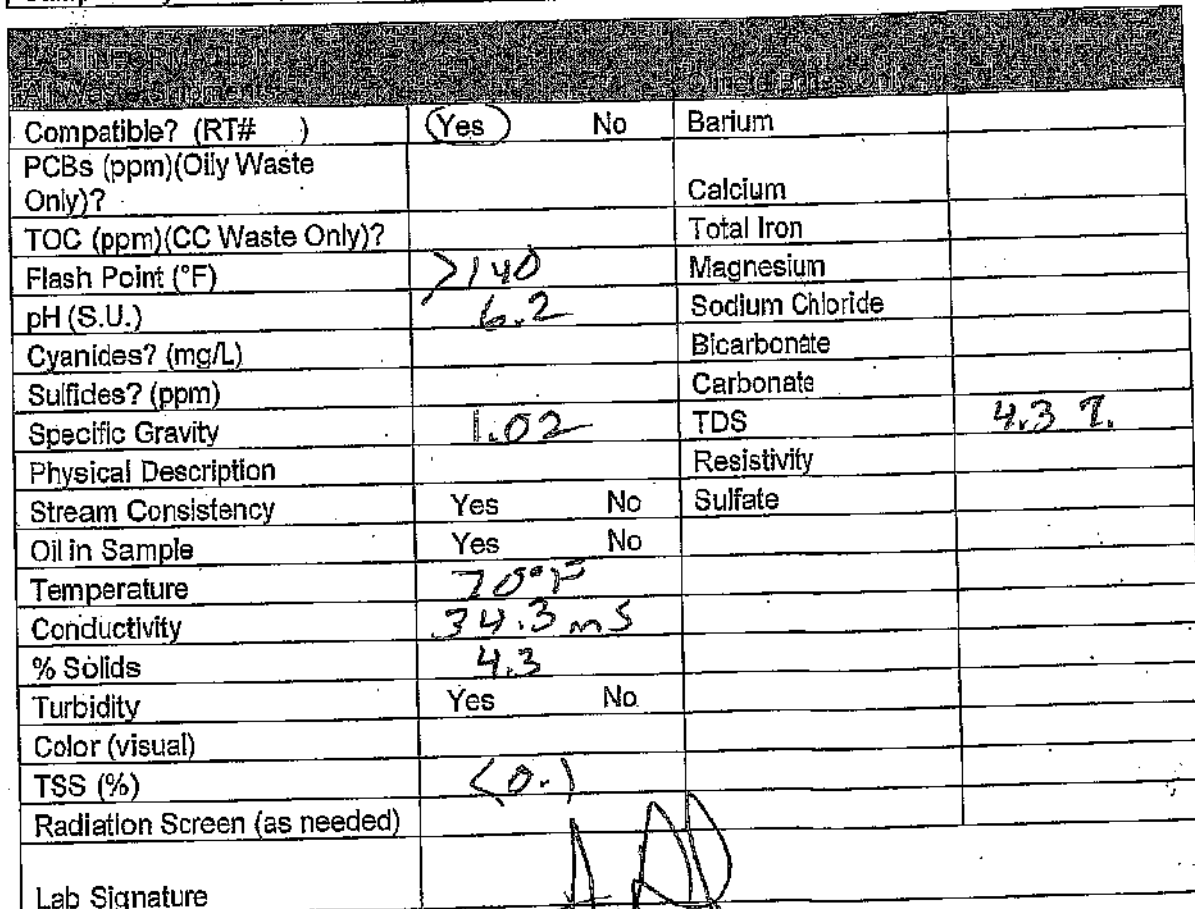 LAB INFORMATION
All Waste Shipments
Compatible? (RT# ) Yes No Barium
PCBs (ppm)(Oily Waste
Only)? Calcium
TOC (ppm)(CC Waste Only)? Total Iron
Flash Point (°F) >140 Magnesium
pH (S.U.) 6.2 Sodium Chloride
Cyanides? (mg/L) Bicarbonate
Sulfides? (ppm) Carbonate
Specific Gravity 1.02 TDS 4.3 %
Physical Description Resistivity
Stream Consistency Yes No Sulfate
Oil in Sample Yes No
Temperature 70°F
Conductivity 34.3 mS
% Solids 4.3
Turbidity Yes No
Color (visual)
TSS (%) <0.1
Radiation Screen (as needed)
Lab Signature